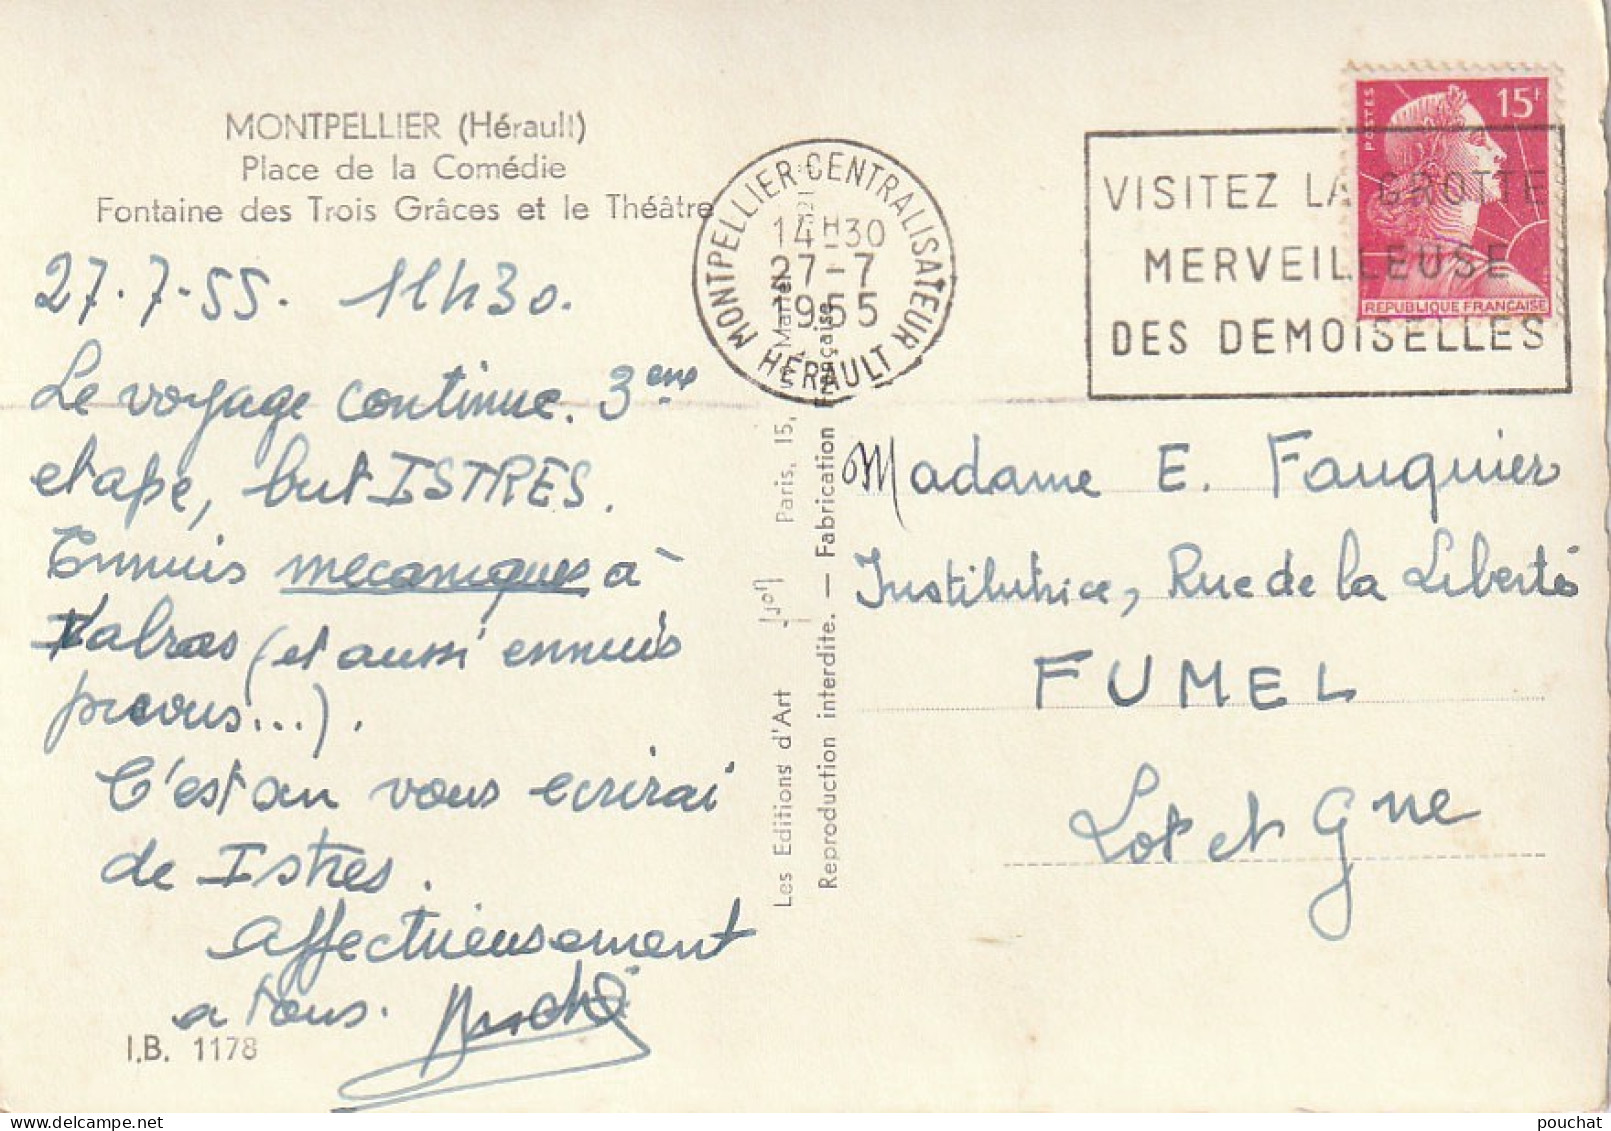 MONTPELLIER (Hérault)
Place de la Comédie
Fontaine des Trois Grâces et le Théâtre
27.7.55. 11h30.
Le voyage continue. 3eme
etape, but ISTRES.
Ennuis mecaniques à
Valras (et aussi ennuis
prevus...).
C'est on vous ecrirai
de Istres.
Affectueusement
a tous.
I.B. 1178
Les Editions d'Art
Paris, 15,
Reproduction interdite. — Fabrication Française
MONTPELLIER CENTRALISATEUR
14H30
27-7
1955
HÉRAULT
VISITEZ LA GROTTE
MERVEILLEUSE
DES DEMOISELLES
POSTES
15F
REPUBLIQUE FRANÇAISE
Madame E. Fauquier
Institutrice, Rue de la Liberté
FUMEL
Lot et Gne
pouchat